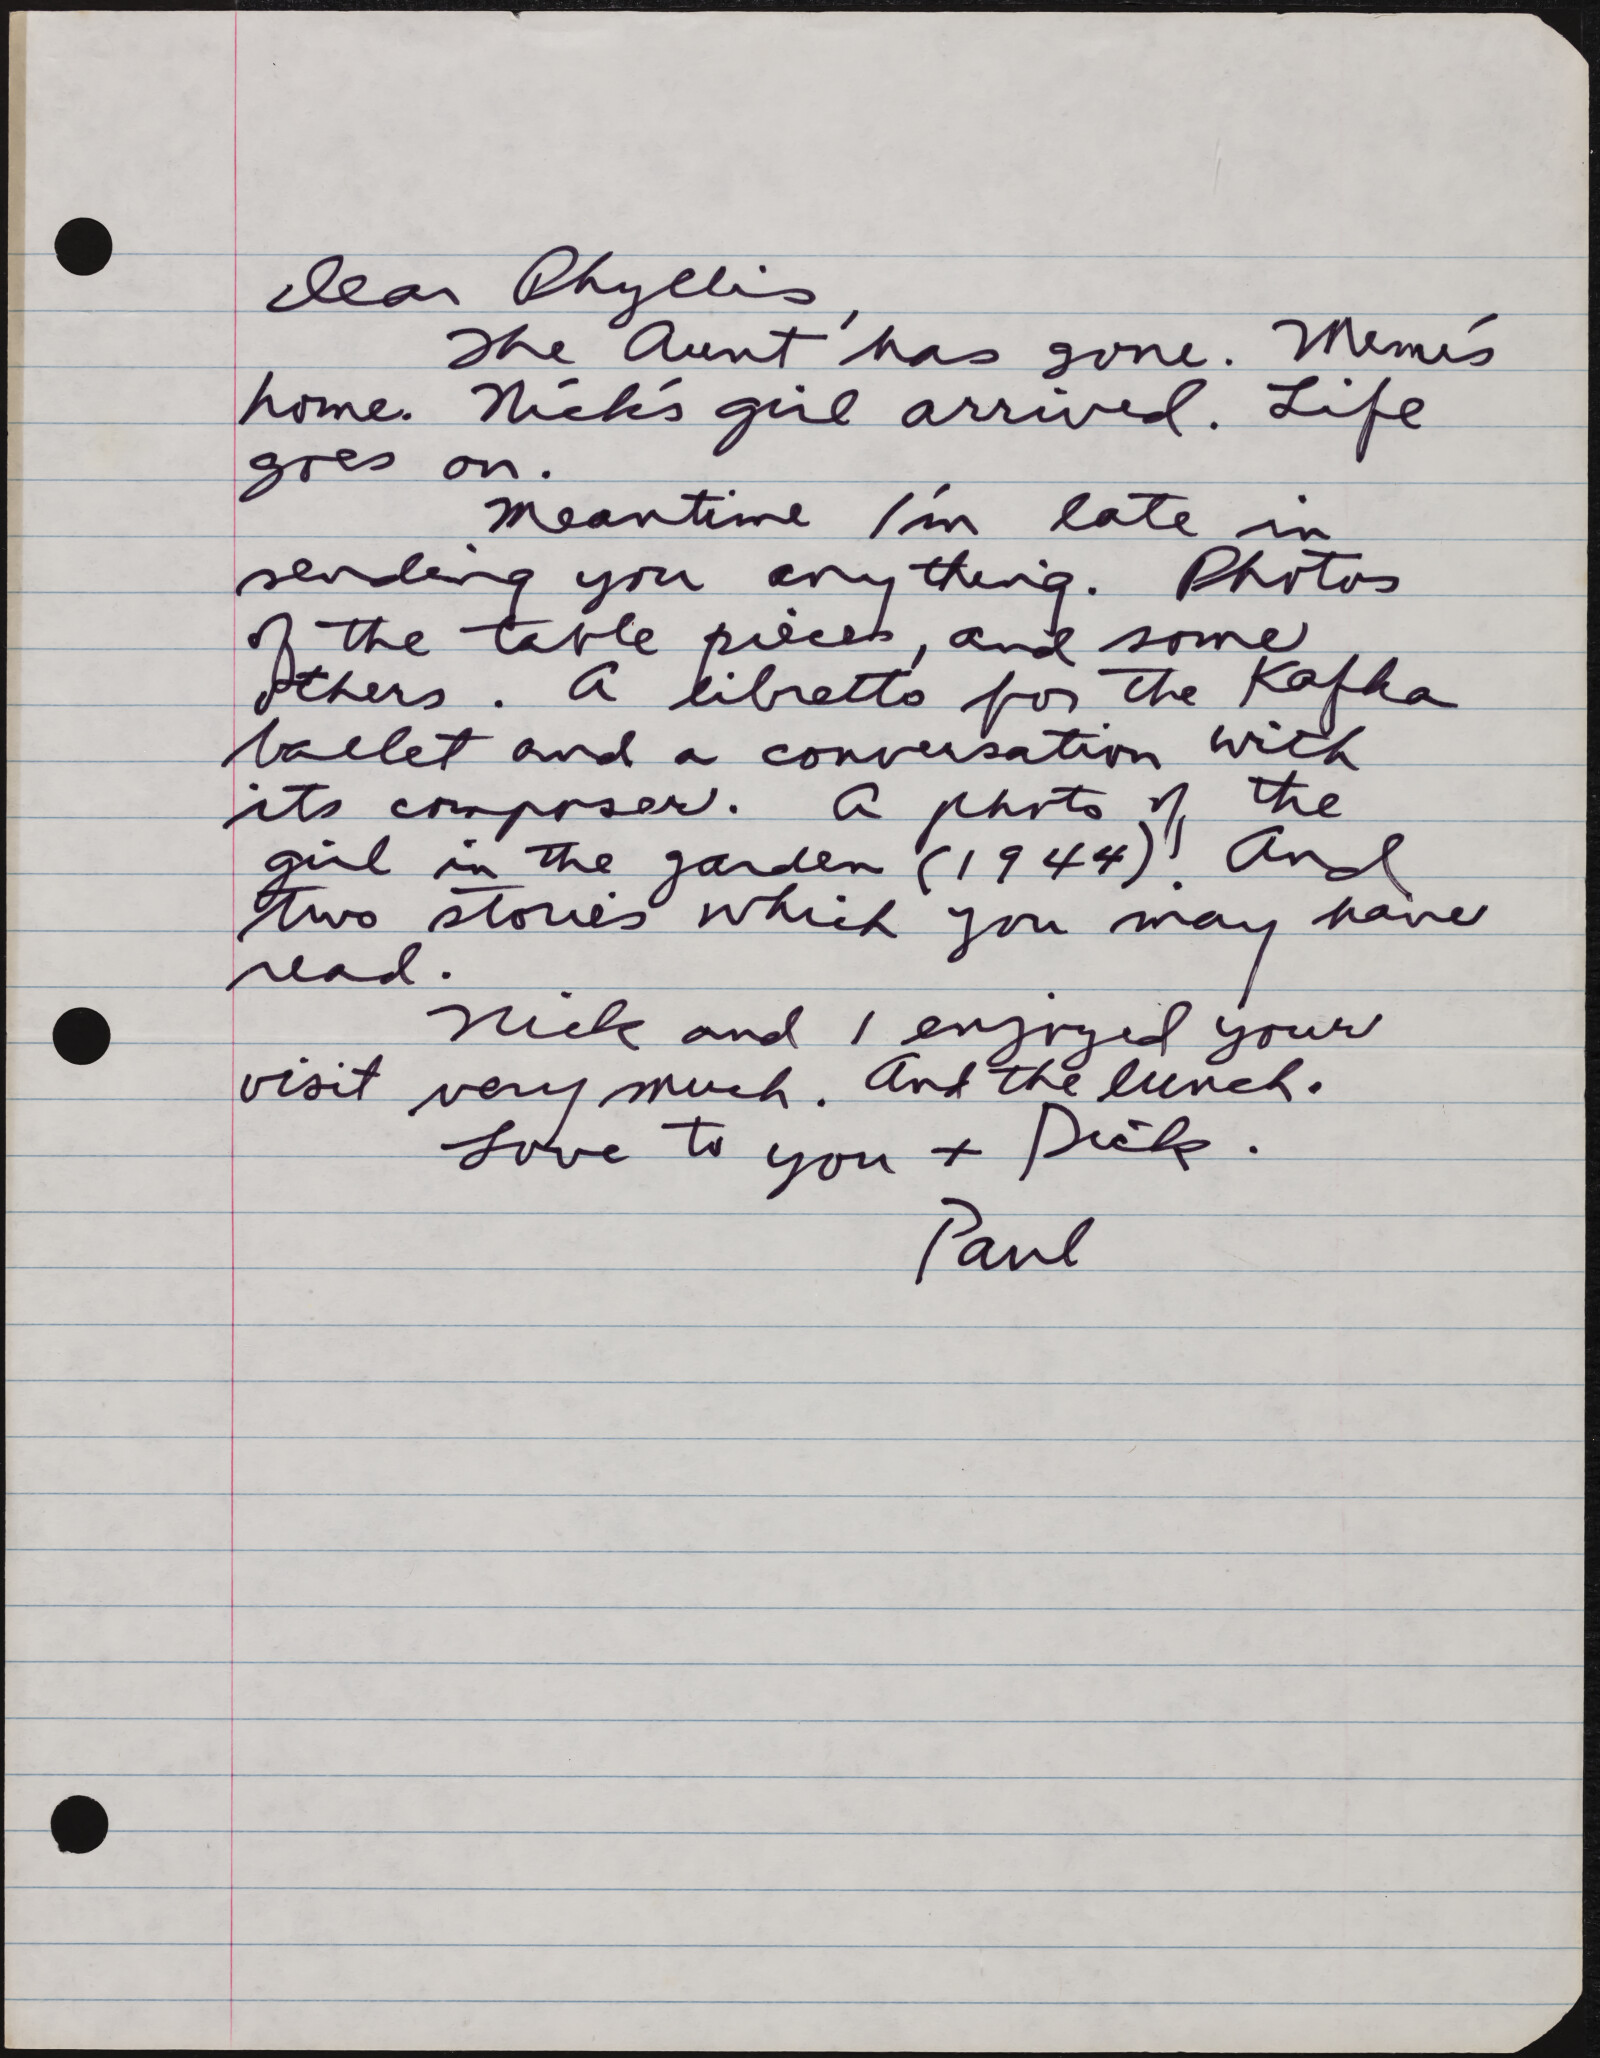 Dear Phyllis,
The Aunt has gone. Mimi's
home. Nick's girl arrived. Life
goes on.
Meantime I'm late in
sending you anything. Photos
of the table pieces, and some
others. A libretto for the Kafka
ballet and a conversation with
its composer. A photo of the
girl in the garden (1944)! And
two stories which you may have
read.
Nick and I enjoyed your
visit very much. And the lunch.
Love to you + Dick.
Paul